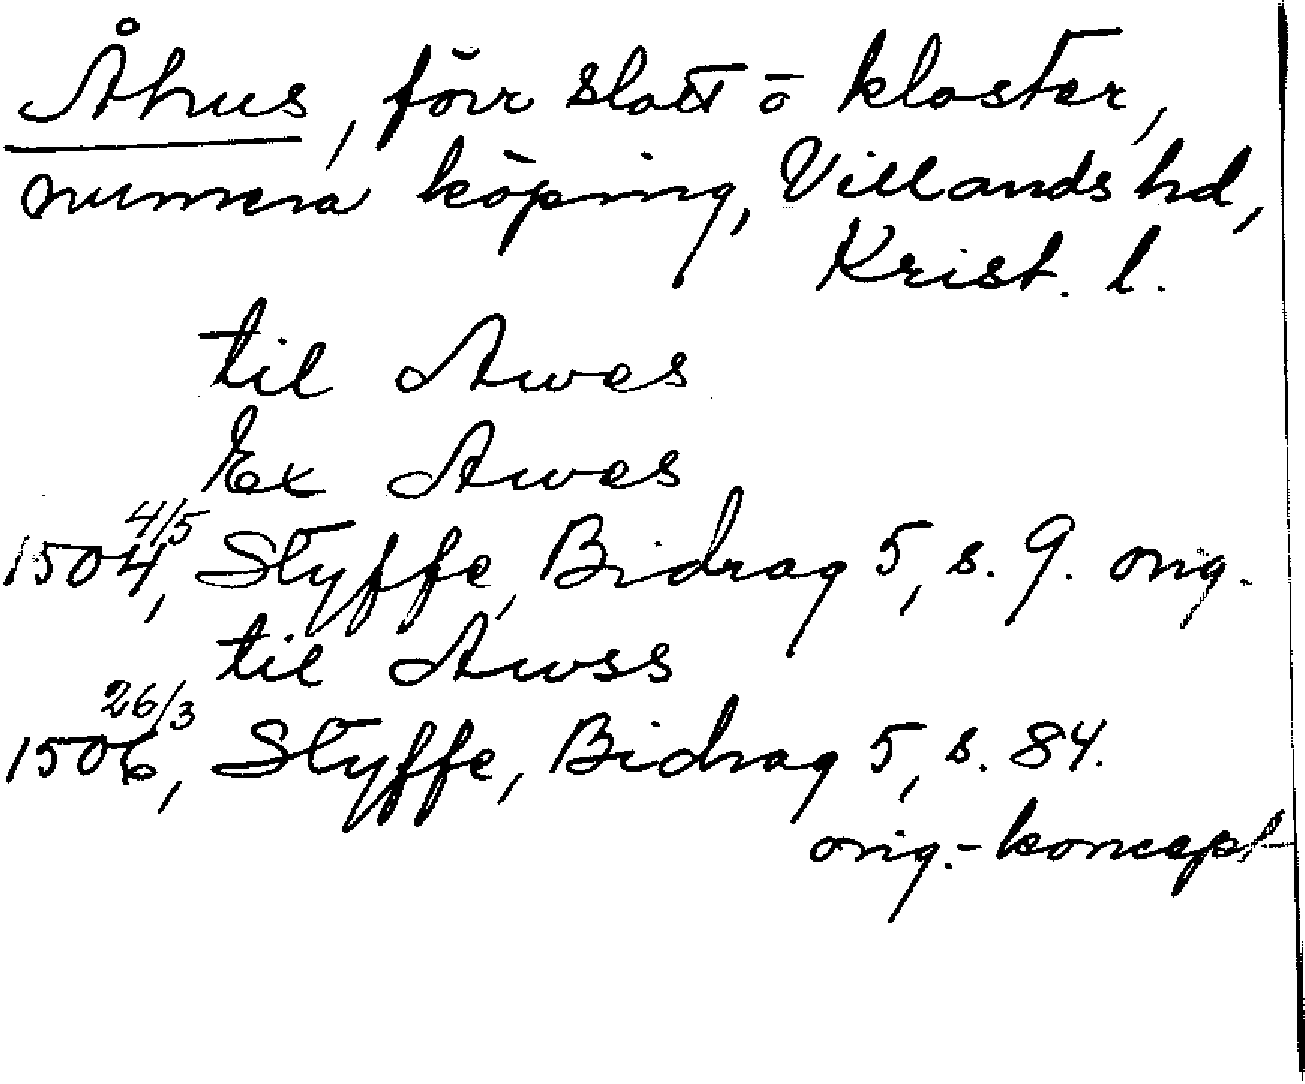 Åhus, förr slott ō kloster,
numera köping, Villands hd,
Krist. l.
til Awes
Ex Awes
1504 4/5, Styffe, Bidrag 5, s. 9. orig.
til Awss
1506 26/3, Styffe, Bidrag 5, s. 84.
orig.-koncept